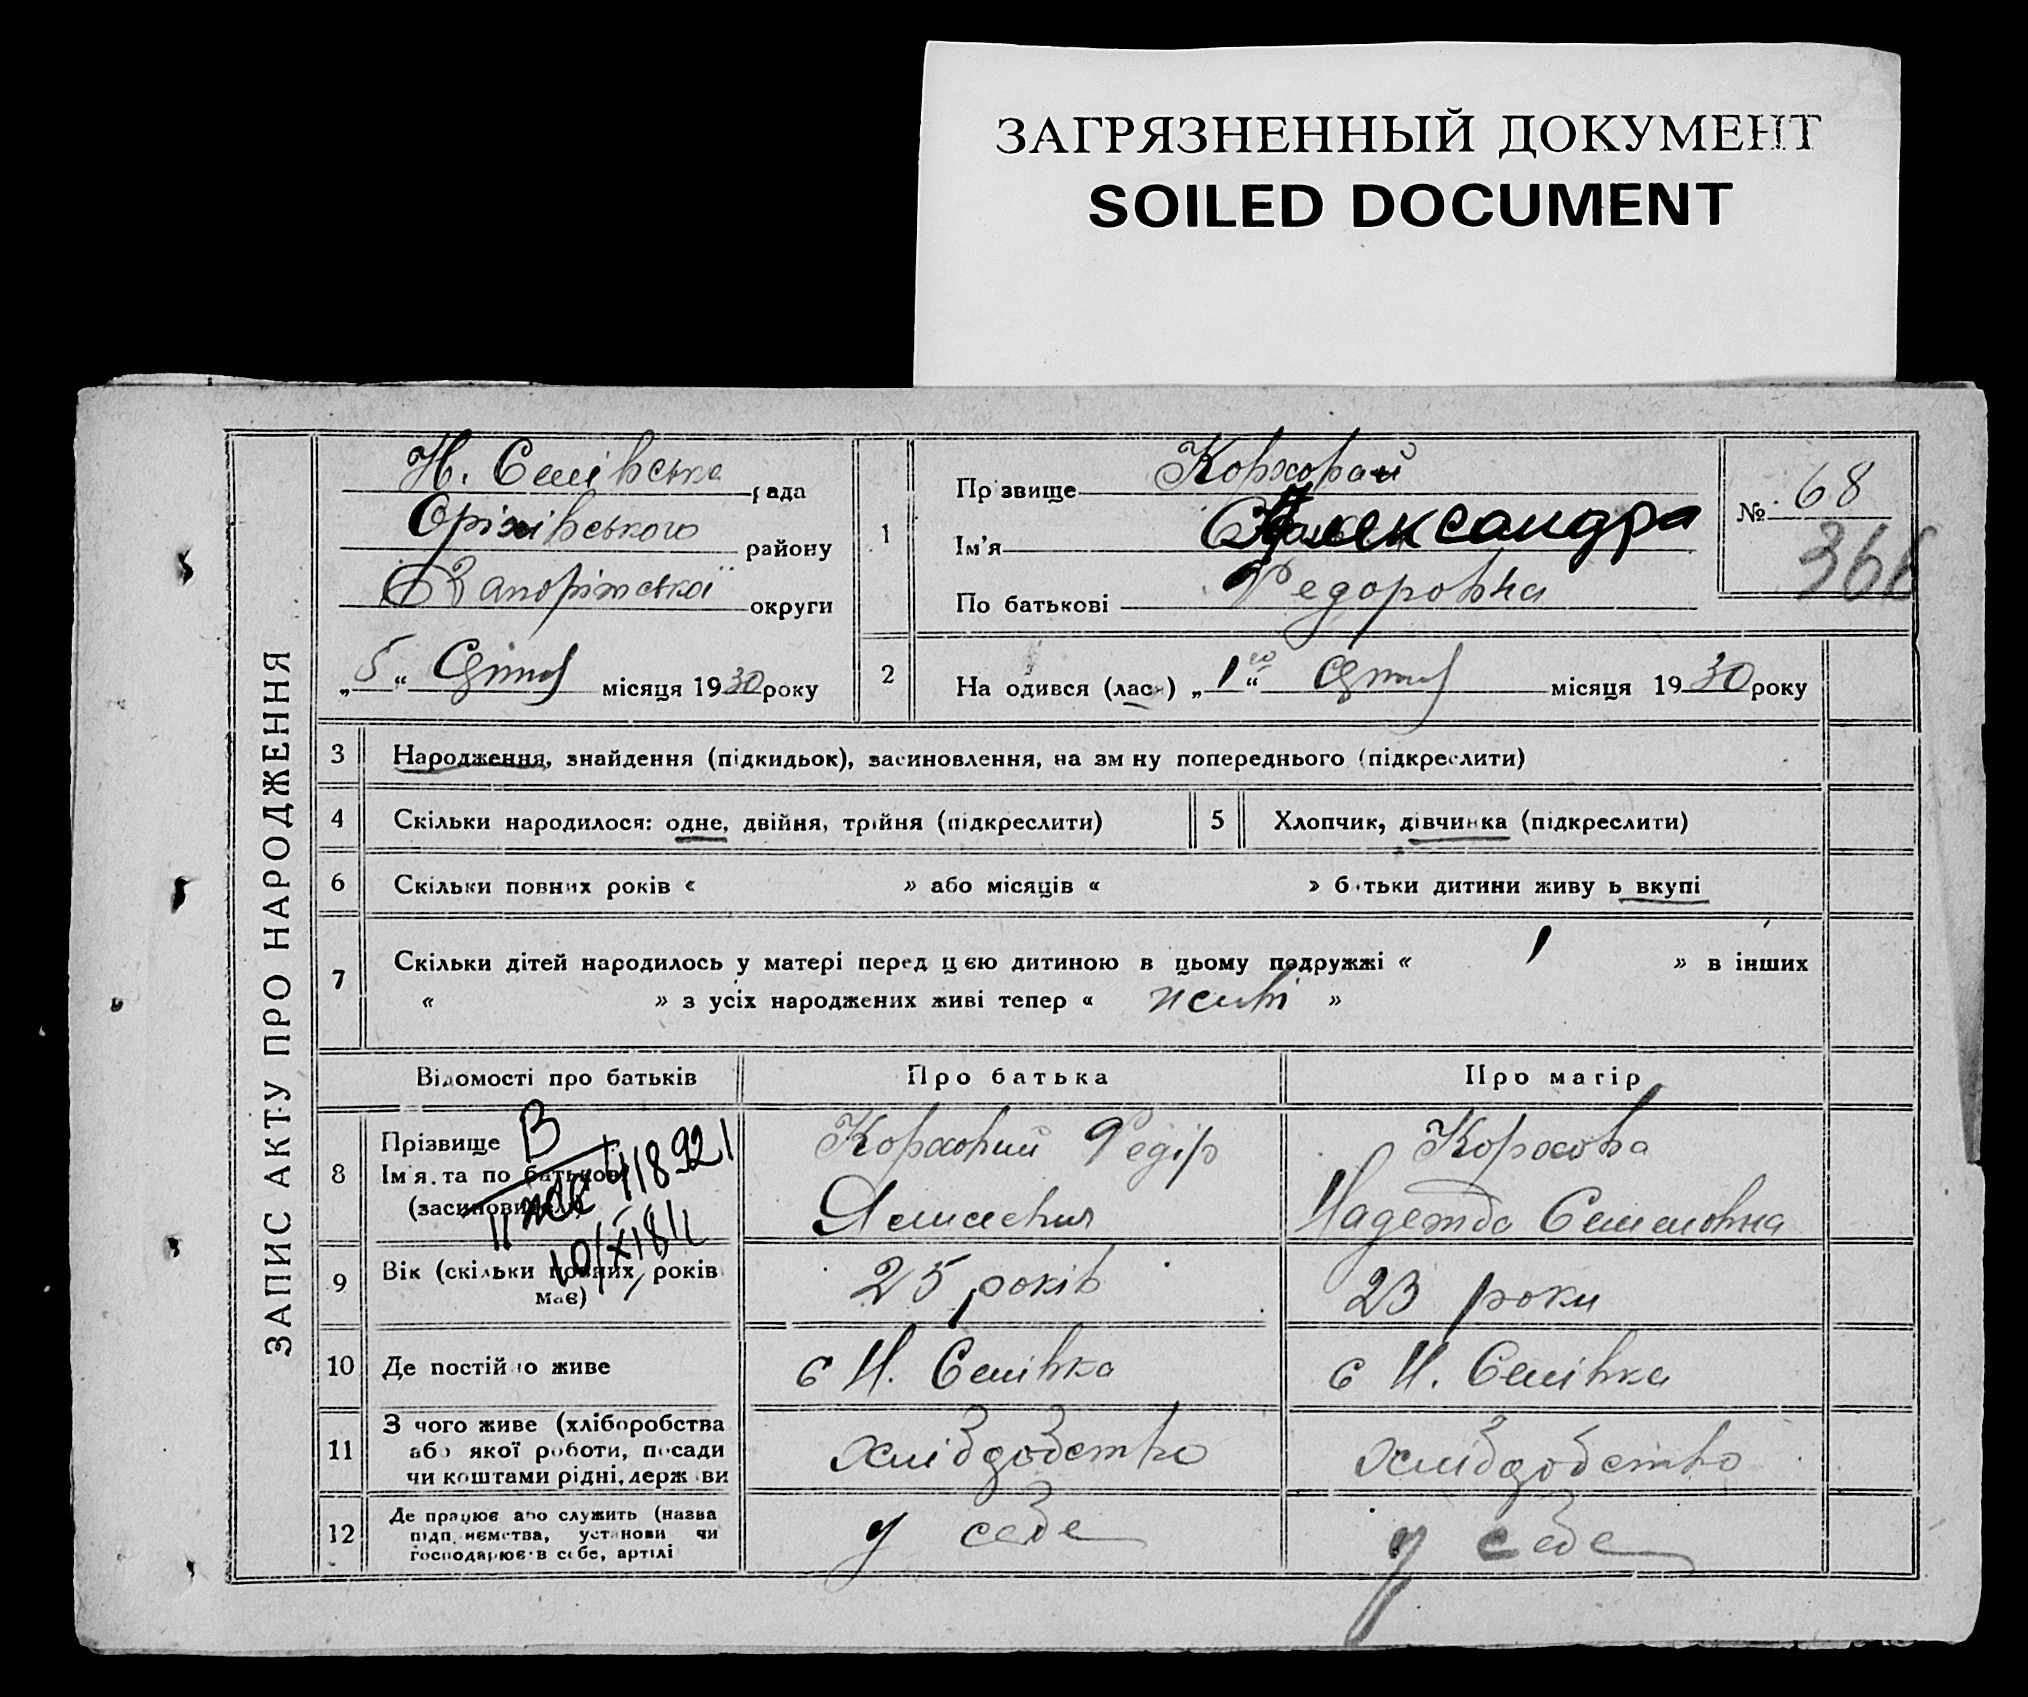 ЗАГРЯЗНЕННЫЙ ДОКУМЕНТ
SOILED DOCUMENT
ЗАПИС АКТУ ПРО НАРОДЖЕННЯ
Н. Семівська рада
Оріхівського району
Запоріжської округи
„5“ місяця 1930 року
1
Прізвище
Ім'я Александра
По батькові Федоровна
№ 68
366
2
На одився (лась) „1го“ місяця 1930 року
3 Народження, знайдення (підкидьок), засиновлення, на зм ну попереднього (підкреслити)
4 Скільки народилося: одне, двійня, трійня (підкреслити)
5 Хлопчик, дівчинка (підкреслити)
6 Скільки повних років « » або місяців « » батьки дитини живу ь вкупі
7 Скільки дітей народилось у матері перед цією дитиною в цьому подружжі « 1 » в інших
« » з усіх народжених живі тепер « живі »
Відомості про батьків Про батька Про матір
8 Прізвище
Ім'я та по батькові
(засиновителі)
В
II ЖС 418921
Федір
Надежда Семеновна
9 Вік (скільки повних років
має)
25 років
23 роки
10 Де постійно живе
с Н. Семівка
с Н. Семівка
11 З чого живе (хліборобства
або якої роботи, посади
чи коштами рідні, держави
хлібдобство
хлібдобство
12 Де працює або служить (назва
підприємства, установи чи
господарює в себе, артілі
у себе
у себе